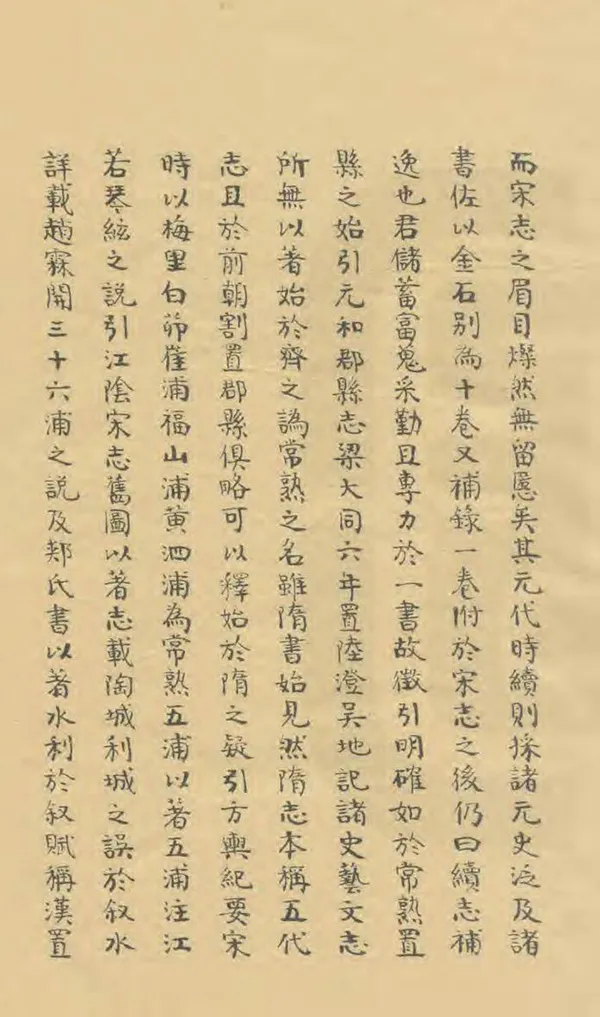 而宋志之眉目燦然無留慝矣其元代時續則採諸元史泛及諸
書佐以金石别為十卷又補錄一卷附於宋志之後仍曰續志補
逸也君儲蓄富鬼采勤且專力於一書故徵引明確如於常熟置
縣之始引元和郡縣志梁大同六年置陸澄吴地記諸史藝文志
所無以著始於齊之譌常熟之名雖隋書始見然隋志本稱五代
志且於前朝割置郡縣俱略可以釋始於隋之疑引方輿紀要宋
時以梅里白茆崔浦福山浦黄泗浦為常熟五浦以著五浦注江
若琴絃之說引江陰宋志舊圖以著志載陶城利城之誤於叙水
詳載趙霖開三十六浦之說及郟氏書以著水利於叙賦稱漢置